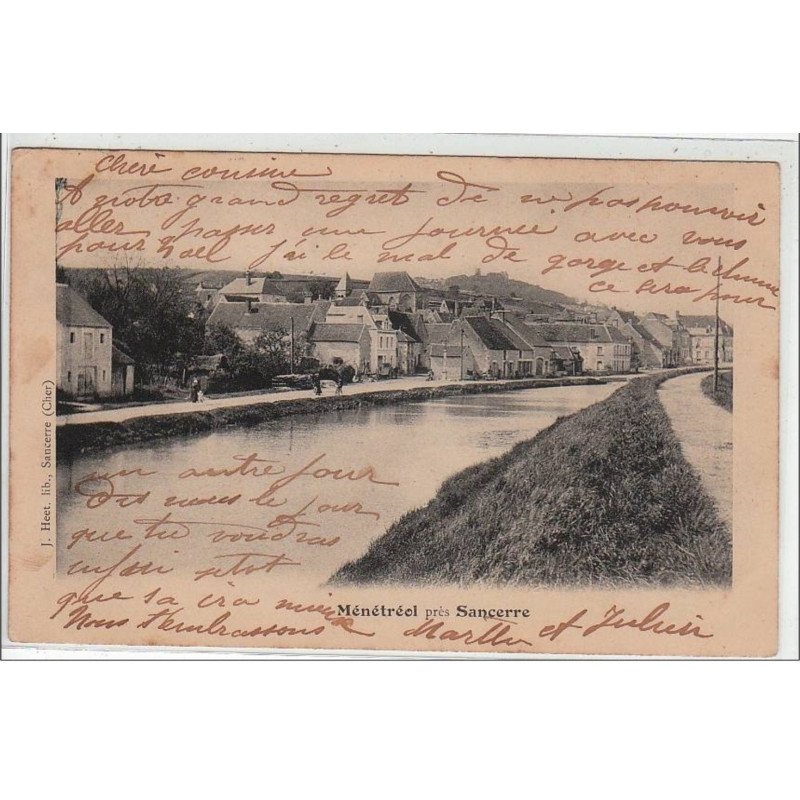 Chère cousine
A notre grand regret de ne pas pouvoir
aller passer une journée avec vous
pour Noel j'ai le mal de gorge et
ce sera pour
un autre jour
Dis nous le jour
que tu voudras
enfin sitot
que sa ira mieux
Nous t'embrassons Marthe et Julien
Ménétréol près Sancerre
J. Heet. lib., Sancerre (Cher)